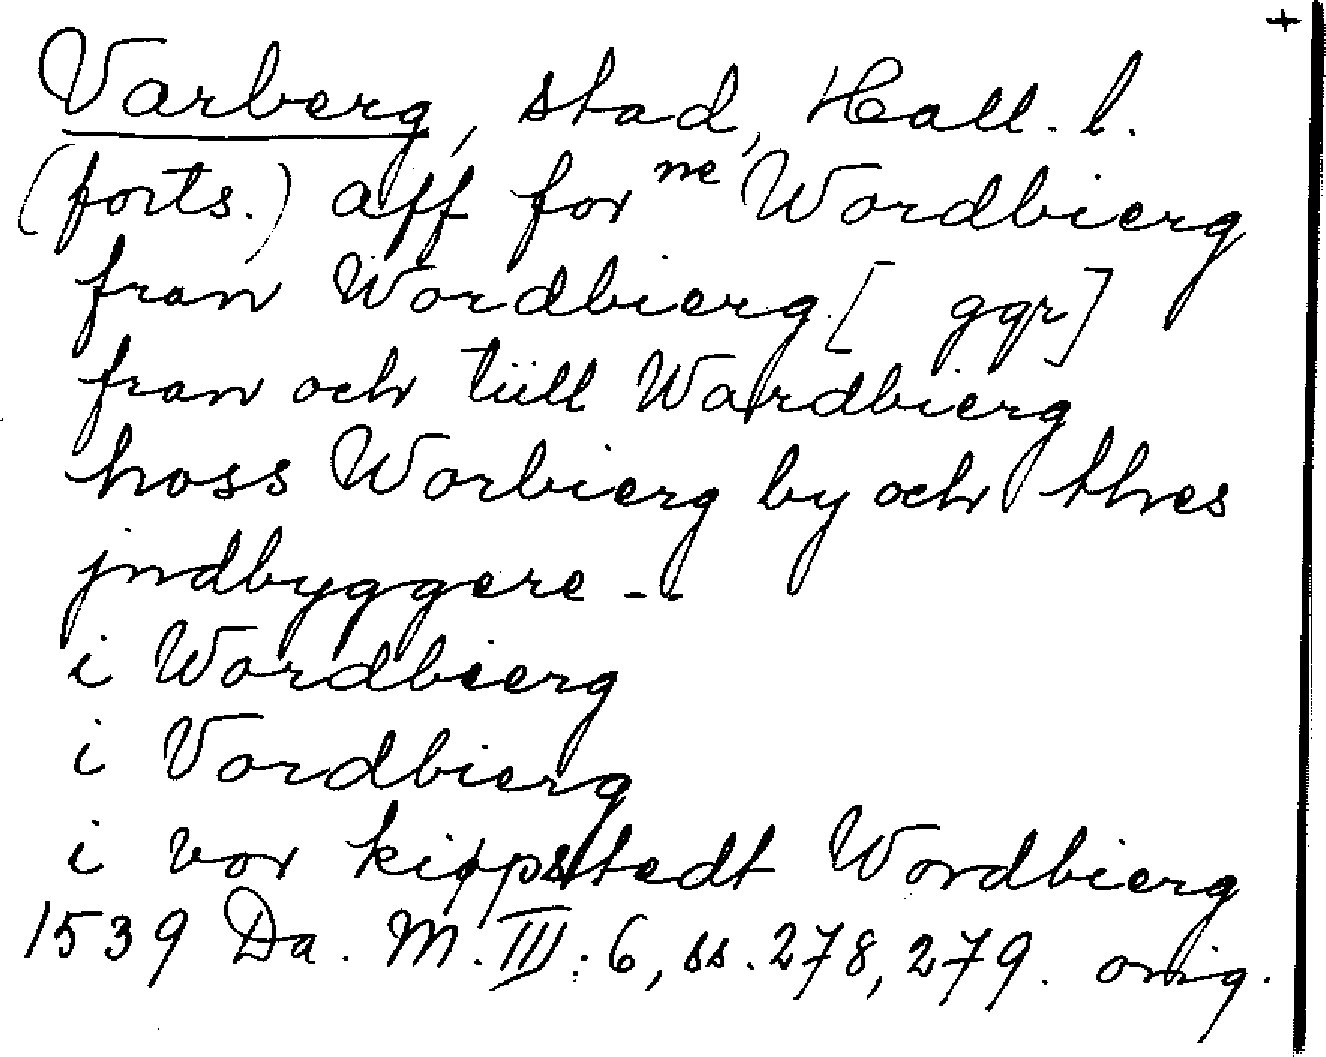 +
Varberg, stad, Hall. l.
(forts.) aff for ne Wordbierg
fran Wordbierg [ ggr]
fran och tiill Wardbierg
hoss Worbierg by och thes
jndbyggere --
i Wordbierg
i Vordbierg
i vor kippstedt Wordbierg
1539 Da. M. III: 6, ss. 278, 279. orig.